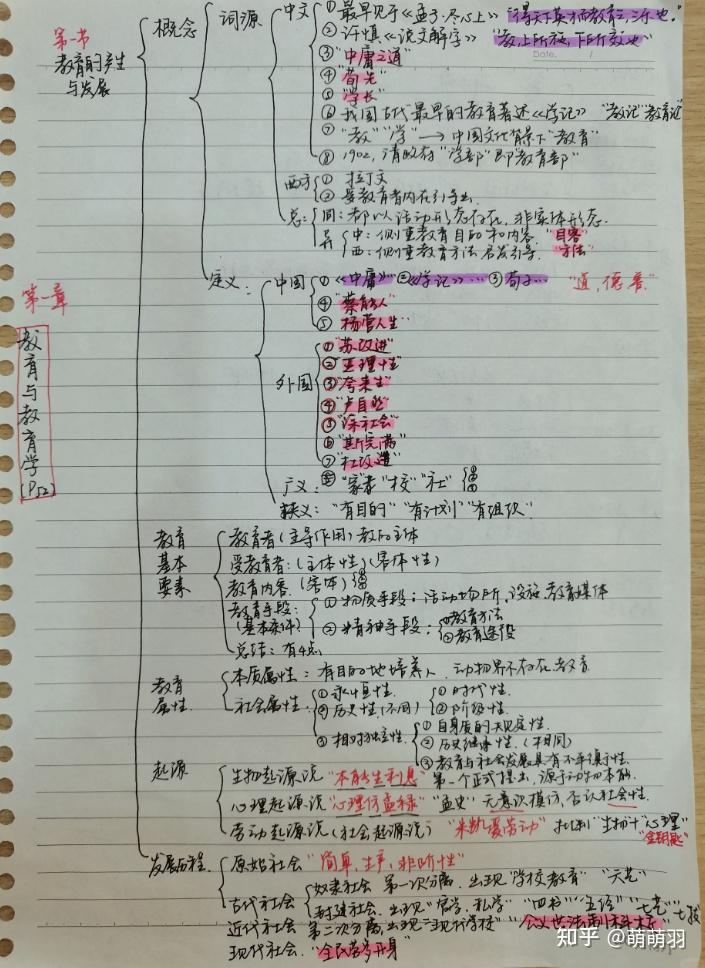 第一节
教育的产生
与发展
第一章
教育与教育学
(P52)
概念
词源
中文
① 最早见于《孟子·尽心上》"得天下英才而教育之，三乐也."
② 许慎《说文解字》"教，上所施，下所效也"
Date.
③ "中庸之道"
④ "荀先"
⑤ "学长"
⑥ 我国古代最早的教育著述《学记》 "教记""教育论"
⑦ "教""学"→中国文化背景下"教育"
⑧ 1902, 清政府"学部"即"教育部"
西方
① 拉丁文
② 受教育者内在引导出.
总:
同: 都以活动形态存在, 非实体形态.
异
中: 侧重教育目的和内容. "目容"
西: 侧重教育方法 启发引导. "方法"
定义:
中国
①《中庸》… ②《学记》… ③荀子… "道, 德, 善"
④ "蔡育人"
⑤ "杨营人生"
外国
① "苏改进"
② "亚理性"
③ "夸来生"
④ "卢自然"
⑤ "涂社会"
⑥ "斯完满"
⑦ "杜改造"
广义: "家" "校" "社"
狭义: "有目的" "有计划" "有组织"
教育
基本
要素
教育者(主导作用) 教的主体
受教育者: (主体性)(客体性)
教育内容. (客体)
教育手段:
(基本条件)
① 物质手段: 活动场所, 设施, 教育媒体
② 精神手段:
①教育方法
②教育途径
总结: 有4点.
教育
属性.
本质属性: 有目的地培养人. 动物界不存在教育
社会属性
① 永恒性.
② 历史性(不同)
① 时代性.
② 阶级性.
③ 相对独立性.
① 自身质的规定性.
② 历史继承性. (相同)
③ 教育与社会发展具有不平衡性.
起源
生物起源说 "本能生利息" 第一个正式提出, 源于动物本能.
心理起源说 "心理仿孟禄" "孟史" 无意识模仿, 否认社会性.
劳动起源说(社会起源说) "米凯爱劳动" 批判"生物"+"心理"
"金钥匙"
发展历程.
原始社会 "简单, 生产, 非阶性"
古代社会
奴隶社会 第一次分离. 出现"学校教育" "六艺"
封建社会. 出现"官学、私学" "四书" "五经" "七艺" "七技"
近代社会 第二次分离, 出现"现代学校" "公义世法制
现代社会. "全民
知乎 @萌萌羽